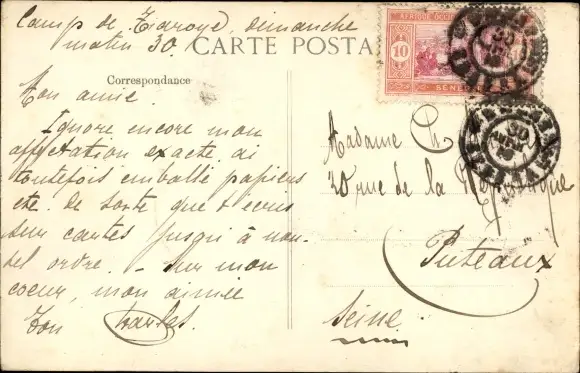 Camp de Tiaroye, dimanche
matin 30.
CARTE POSTA
Correspondance
Mon amie.
Ignore encore mon
affectation exacte. ai
toutefois emballé papiers
etc. de sorte que t'écris
sur cartes jusqu'à nou-
vel ordre. - sur mon
coeur, mon aimée
Ton Charles.
AFRIQUE OCCI
10
SÉNÉG
30
30
Madame C
20 rue de la République
Puteaux
Seine.